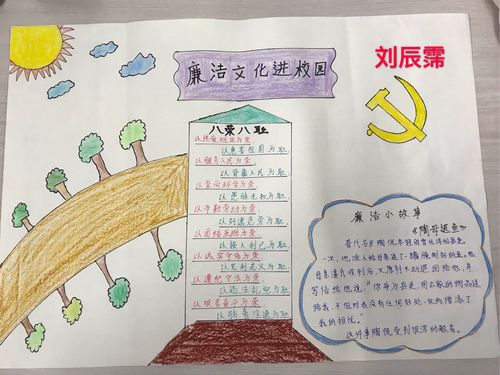 廉洁文化进校园
刘辰霈
八荣八耻
以热爱祖国为荣,
以危害祖国为耻,
以服务人民为荣,
以背离人民为耻,
以崇尚科学为荣,
以愚昧无知为耻,
以辛勤劳动为荣,
以好逸恶劳为耻,
以团结互助为荣,
以损人利己为耻,
以诚实守信为荣,
以见利忘义为耻,
以遵纪守法为荣,
以违法乱纪为耻,
以艰苦奋斗为荣,
以骄奢淫逸为耻
廉洁小故事
《陶母退鱼》
晋代名士陶侃年轻时曾任浔阳县吏。
一次,他派人给母亲送了一罐腌制好的鱼。他
母亲湛氏收到后,又原封不动退回给他,并
写信给他说:"你身为县吏,用公家的物品送
给我,不但对我没有任何好处,反而增添了
我的担忧。"
这件事陶侃受到很深的教育。